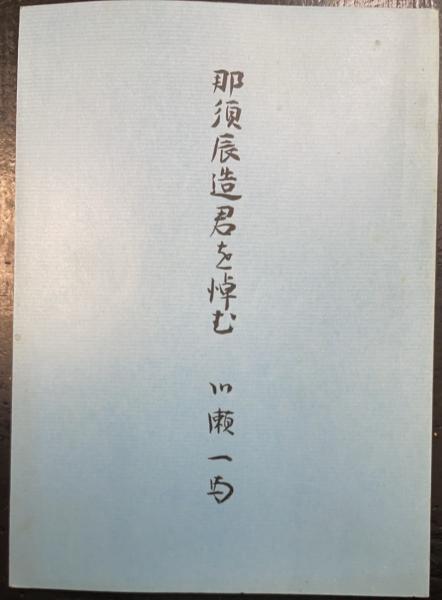 那須辰造君を悼む　川瀬一馬